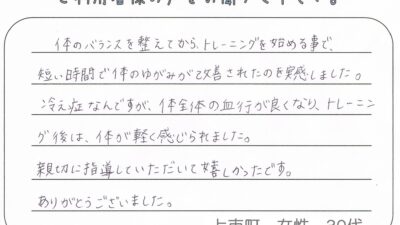 体のバランスを整えてから、トレーニングを始める事で、
短い時間で体のゆがみがて改善されたのを実感しました。
冷え症なんですが、体全体の血行が良くなり、トレーニン
グ後は、体が軽く感じられました。
親切に指導していただいて嬉しかったです。
ありがとうございました。